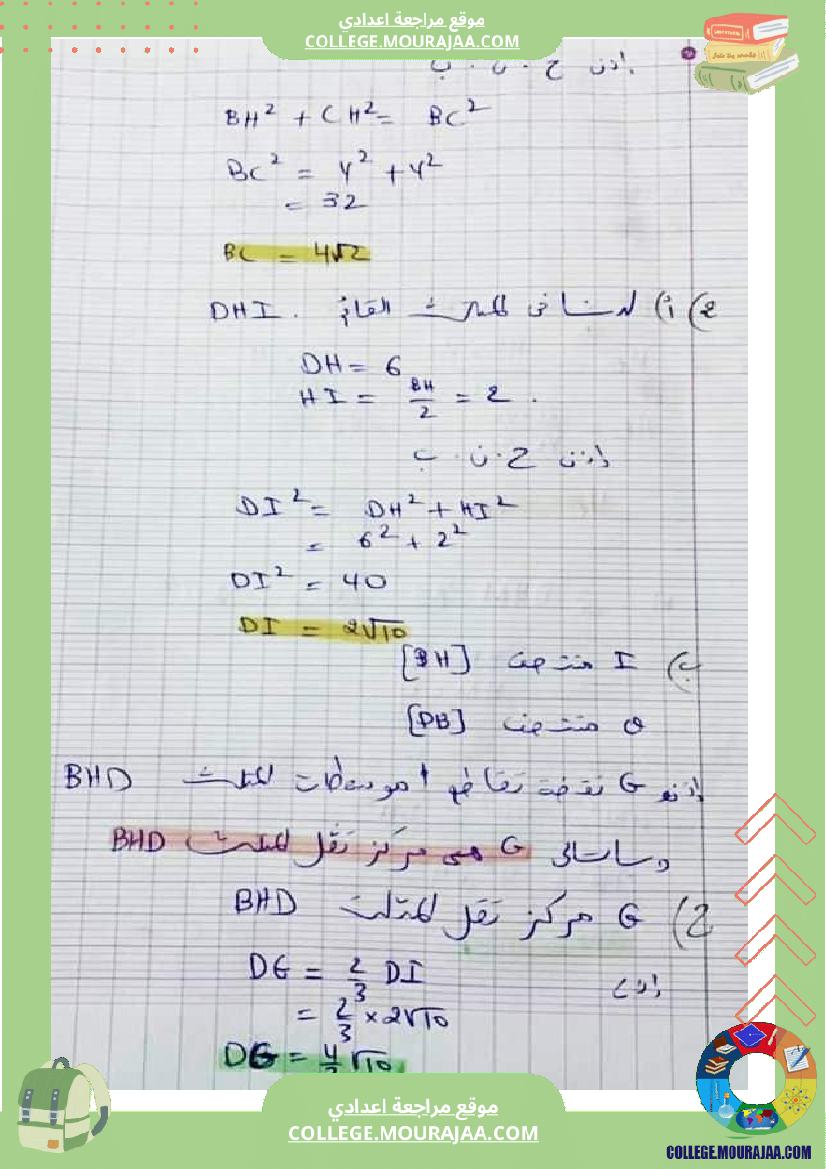 موقع مراجعة اعدادي
COLLEGE.MOURAJAA.COM
إذن ح . ن . ب
BH² + CH² = BC²
BC² = 4² + 4²
= 32
BC = 4√2
2) أ) لدينا في المثلث القائم DHI .
DH = 6
HI = BH/2 = 2 .
إذن ح . ن . ب
DI² = DH² + HI²
= 6² + 2²
DI² = 40
DI = 2√10
ب) I منتصف [BH]
O منتصف [DB]
إذن G نقطة تقاطع موسطات المثلث BHD
وبالتالي G هي مركز ثقل المثلث BHD
ج) G مركز ثقل المثلث BHD
إذن
DG = 2/3 DI
= 2/3 × 2√10
DG = 4/3 √10
موقع مراجعة اعدادي
COLLEGE.MOURAJAA.COM
COLLEGE.MOURAJAA.COM